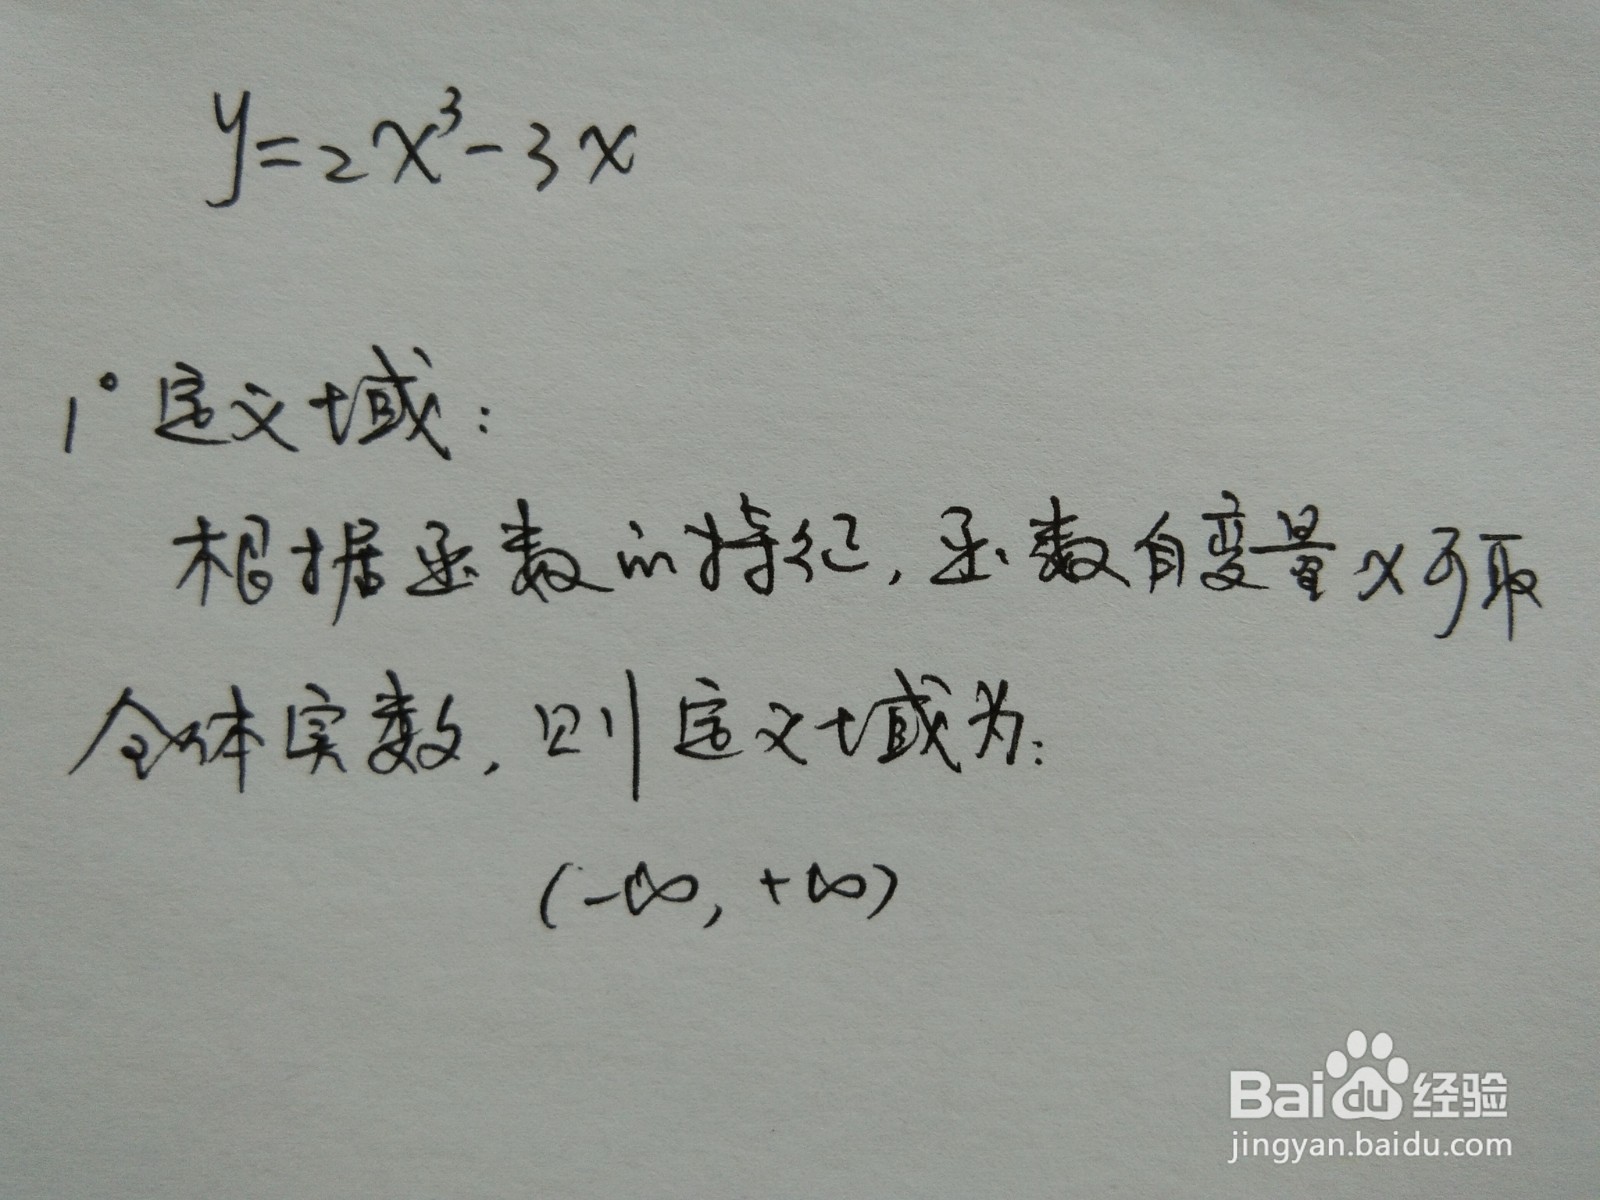 y=2x³-3x
1°定义域:
根据函数的特征,函数自变量x可取
全体实数,则定义域为:
(-∞,+∞)
Baidu经验
jingyan.baidu.com